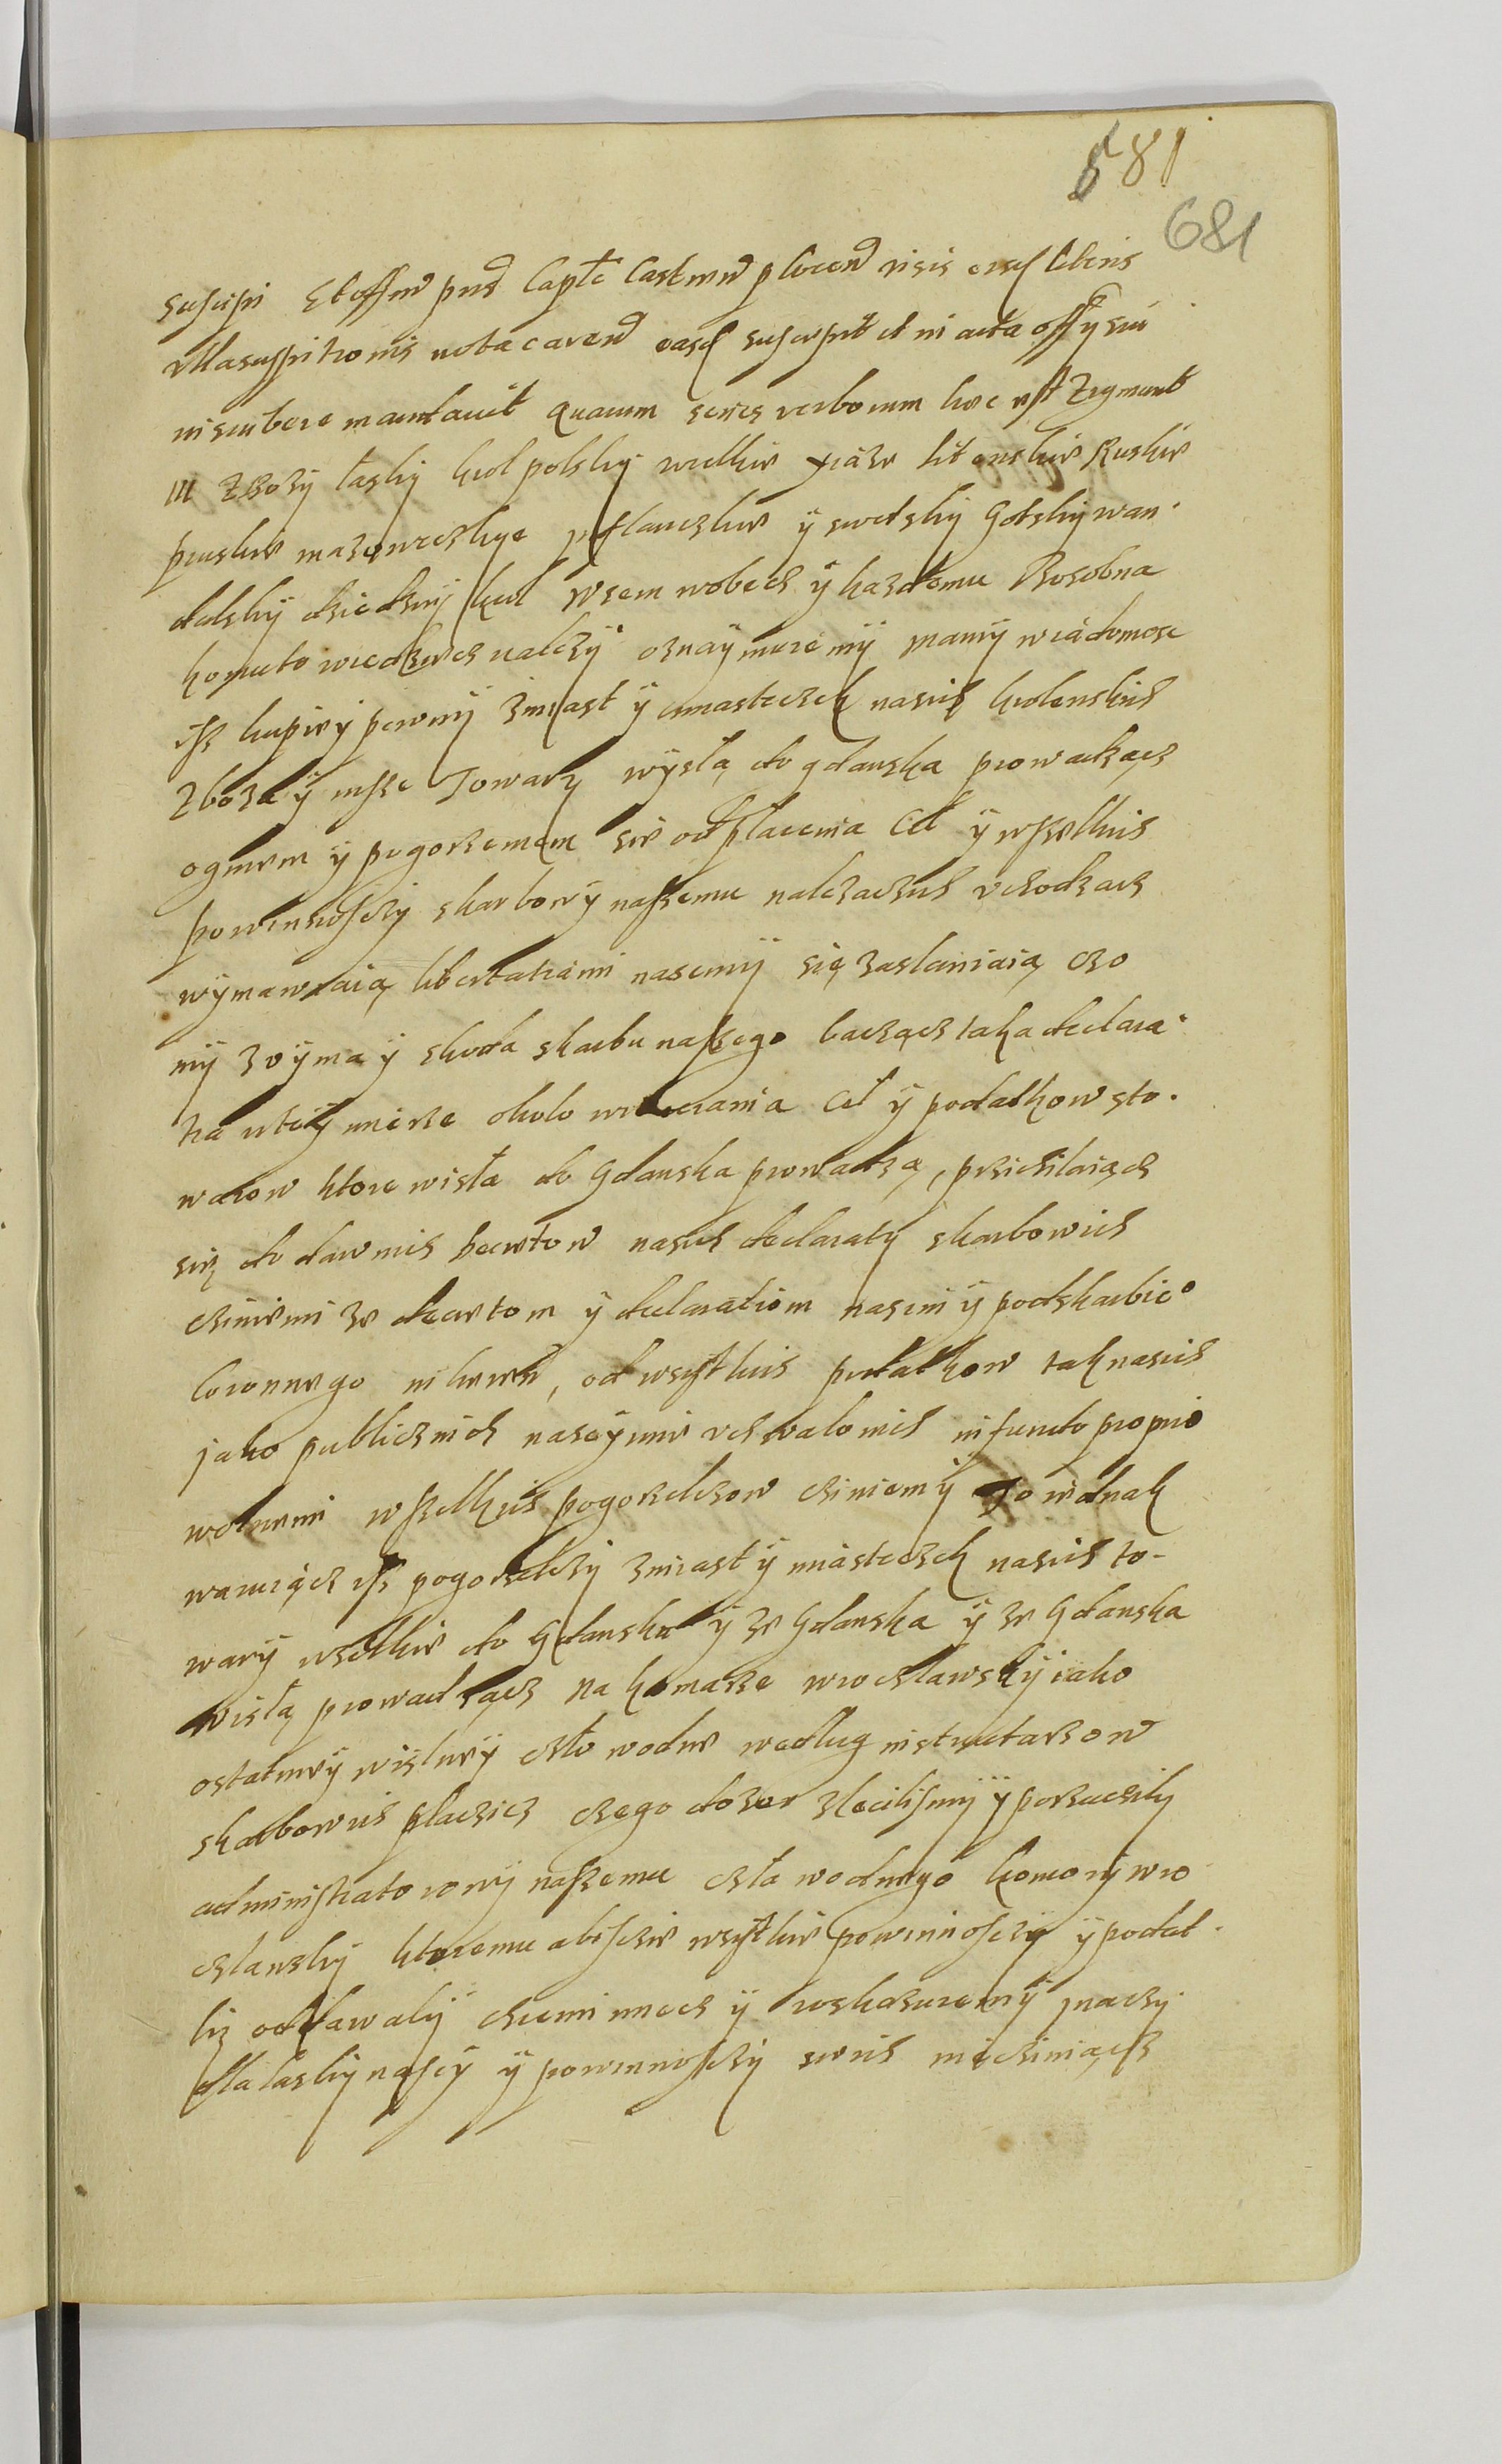 581
681
suscipi Et offm pns Capitle Castren plocen visis eisd literis
ulla suspitionis nota caren easd suscepit et in acta offy sui
inscribere mandavit quarum series verborum haec est Zigmunt
III Zbozy łasky krol polsky wielkie xiąze litewskie Ruskie
pruskie mazowieczkye inflanczkie y swedsky Gotsky wan
dalsky dziedziczny krol wsem wobecz y kazdemu Zosobna
komuto wiedziecz nalezy oznaymuiemy mamy wiadomosc
isz kupczy pewny zmiast y miasteczek nasich krolewskich
Zboza y insze Towary wysłą do gdanska prowadzącz
ogniem y pogorzeniem sie od płacenia Ceł y wszelkich
powinnosczy skarbowy naszemu nalezaczich uchodzacz
wymawiaią libertatiami nasemy się zaslaniaią czo
my z uymą y skodą skarbu naszego bacząc taka declara
tia w tey mierze okolo wybierania Ceł y podatkow sto
warow ktore wisłą do Gdanska prowadzą, prziczilaiącz
się do dawnich decretow nasich declaraty skarbowich
czinimi ze decretom y declaratiom nasim y podskarbie°
Coronnego nikomu, od wsytkich podatkow tak nasich
jako publicznich na seymie uchwalonich in fundo proprio
wolnemi wszelkich pogorzelczow cziniemy To iednak
waruiącz isz pogorzelczy zmiast y miasteczek nasich to-
wary wselkie do Gdanska y ze Gdanska y ze Gdanska
wisłą prowadzącz na komorze wroczławsky iako
ostatniey wislney czło wodne wedlug instructarzow
skarbowich placzicz czego dozor zlecilismy y poruczily
administratorowy naszemu czła wodnego komory wro
cłansky ktoremu abiscie wsytkie powinnosczy y podat
ki oddawaly chcemi miecz y roskazuiemy inaczy
dla łasky nasey y powinnosczy swich niecziniącz